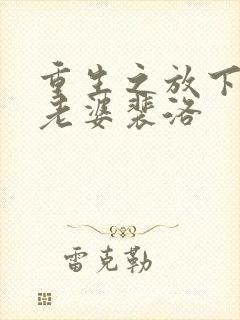 重生之放下
老婆裴洛
雷克勒